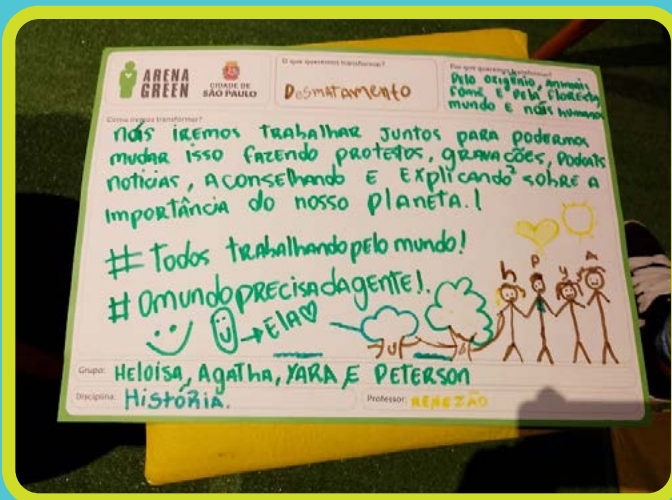 ARENA
GREEN
CIDADE DE
SÃO PAULO
O que queremos transformar?
DesmatAmento
Por que queremos transformar?
Pelo oxigênio, Animais
fome, E pela florestA
mundo E nós humanos
Como iremos transformar?
nós iremos trabalhar Juntos para podermos
mudar isso fazendo protestos, gravações, Podcats
noticias, Aconselhando E Explicando sobre A
importância do nosso planeta.!
# Todos trabalhando pelo mundo!
# Omundo precisa da gente!.
→ Ela
h P y A
Grupo: Heloisa, Agatha, YARA E PETERSON
Disciplina: História.
Professor: RENEZÃO